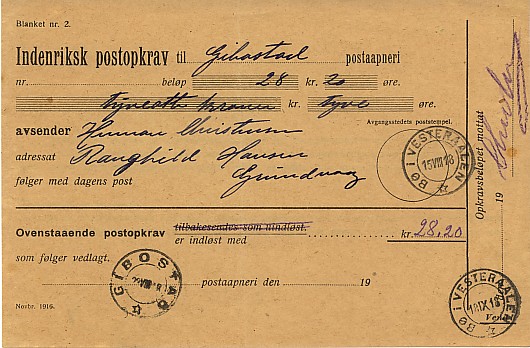 Blanket nr. 2.
Indenriksk postopkrav til Gibostad postaapneri
nr. beløp 28 kr. 20 øre.
kroner kr. tyve øre.
Avgangsstedets poststempel.
avsender Herman Christensen
adressat Ranghild Hansen
følger med dagens post Grundvag
BØ i VESTERAALEN
15 VIII 18
Ovenstaaende postopkrav tilbakesendes som uindløst.
er indløst med kr. 28,20
som følger vedlagt.
GIBOSTAD
postaapneri den 19
Novbr. 1916.
Opkravsbeløpet mottat
19
BØ i VESTERAALEN
1 IX 18
Vend